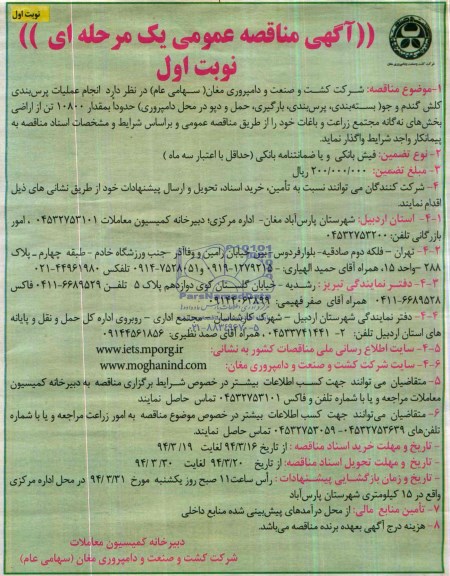 نوبت اول
((آگهی مناقصه عمومی یک مرحله ای ))
نوبت اول
شرکت کشت و صنعت و دامپروری مغان
۱-موضوع مناقصه: شرکت کشت و صنعت و دامپروری مغان( سهامی عام) در نظر دارد انجام عملیات پرس‌بندی
کلش گندم و جو( بسته‌بندی، پرس‌بندی، بارگیری، حمل و دپو در محل دامپروری) حدوداً بمقدار ۱۰۸۰۰ تن از اراضی
بخش‌های نه‌گانه مجتمع زراعت و باغات خود را از طریق مناقصه عمومی و براساس شرایط و مشخصات اسناد مناقصه به
پیمانکار واجد شرایط واگذار نماید.
۲- نوع تضمین: فیش بانکی و یا ضمانتنامه بانکی (حداقل با اعتبار سه ماه )
۳- مبلغ تضمین: ۲۰۰/۰۰۰/۰۰۰ ریال
۴- شرکت کنندگان می توانند نسبت به تأمین، خرید اسناد، تحویل و ارسال پیشنهادات خود از طریق نشانی های ذیل
اقدام نمایند.
۴-۱- استان اردبیل: شهرستان پارس‌آباد مغان- اداره مرکزی؛ دبیرخانه کمیسیون معاملات ۰۴۵۳۲۷۵۳۱۰۱ ، امور
بازرگانی تلفن: ۰۴۵۳۲۷۵۳۲۰۰
۴-۲- تهران - فلکه دوم صادقیه- بلوارفردوس -بین خیابان رامین و وفاآذر -جنب ورزشگاه خادم - طبقه چهارم - پلاک
۲۸۸ -واحد ۱۵، همراه آقای حمید الهیاری. ۰۹۱۹-۱۲۷۹۲۱۵ و ۰۹۱۴-۷۵۲۸۰۵۱ تلفکس ۴۴۹۶۱۹۸۰-۰۲۱
۴-۳- دفتر نمایندگی تبریز : رشدیه - خیابان گلستان کوی دوازدهم پلاک ۵ تلفن ۶۶۸۹۵۲۹-۰۴۱۱ فاکس
۶۶۸۹۵۲۸-۰۴۱۱ همراه آقای صفر فهیمی:
۴-۴- دفتر نمایندگی شهرستان اردبیل - شهرک کارشناسان - مجتمع اداری - روبروی اداره کل حمل و نقل و پایانه
های استان اردبیل تلفن: ۲-۰۴۵۳۳۷۴۱۴۴۱ . همراه آقای صمد نظیری: ۰۹۱۴۴۵۶۱۸۵۶
۴-۵- سایت اطلاع رسانی ملی مناقصات کشور به نشانی: www.iets.mporg.ir
۴-۶- سایت شرکت کشت و صنعت و دامپروری مغان: www.moghanind.com
۵- متقاضیان می توانند جهت کسب اطلاعات بیشتر در خصوص شرایط برگزاری مناقصه به دبیرخانه کمیسیون
معاملات مراجعه و یا با شماره تلفن و فاکس ۰۴۵۳۲۷۵۳۱۰۱ تماس حاصل نمایند.
۶- متقاضیان می‌توانند جهت کسب اطلاعات بیشتر در خصوص موضوع مناقصه به امور زراعت مراجعه و یا با شماره
تلفن‌های ۰۴۵۳۲۷۵۳۶۳۹-۰۴۵۳۲۷۵۳۰۵۹ تماس حاصل نمایند.
- تاریخ و مهلت خرید اسناد مناقصه : از تاریخ ۹۴/۳/۱۶ لغایت ۹۴/۳/۱۹
- تاریخ و مهلت تحویل اسناد مناقصه: از تاریخ ۹۴/۳/۲۰ لغایت ۹۴/۳/۳۰
- تاریخ و زمان بازگشایی پیشنهادات : رأس ساعت ۱۱ صبح روز یکشنبه مورخ ۹۴/۳/۳۱ در محل اداره مرکزی
واقع در ۱۵ کیلومتری شهرستان پارس‌آباد
۷- تأمین منابع مالی: از محل درآمدهای پیش‌بینی شده منابع داخلی
۸- هزینه درج آگهی بعهده برنده مناقصه می‌باشد.
دبیرخانه کمیسیون معاملات
شرکت کشت و صنعت و دامپروری مغان (سهامی عام)